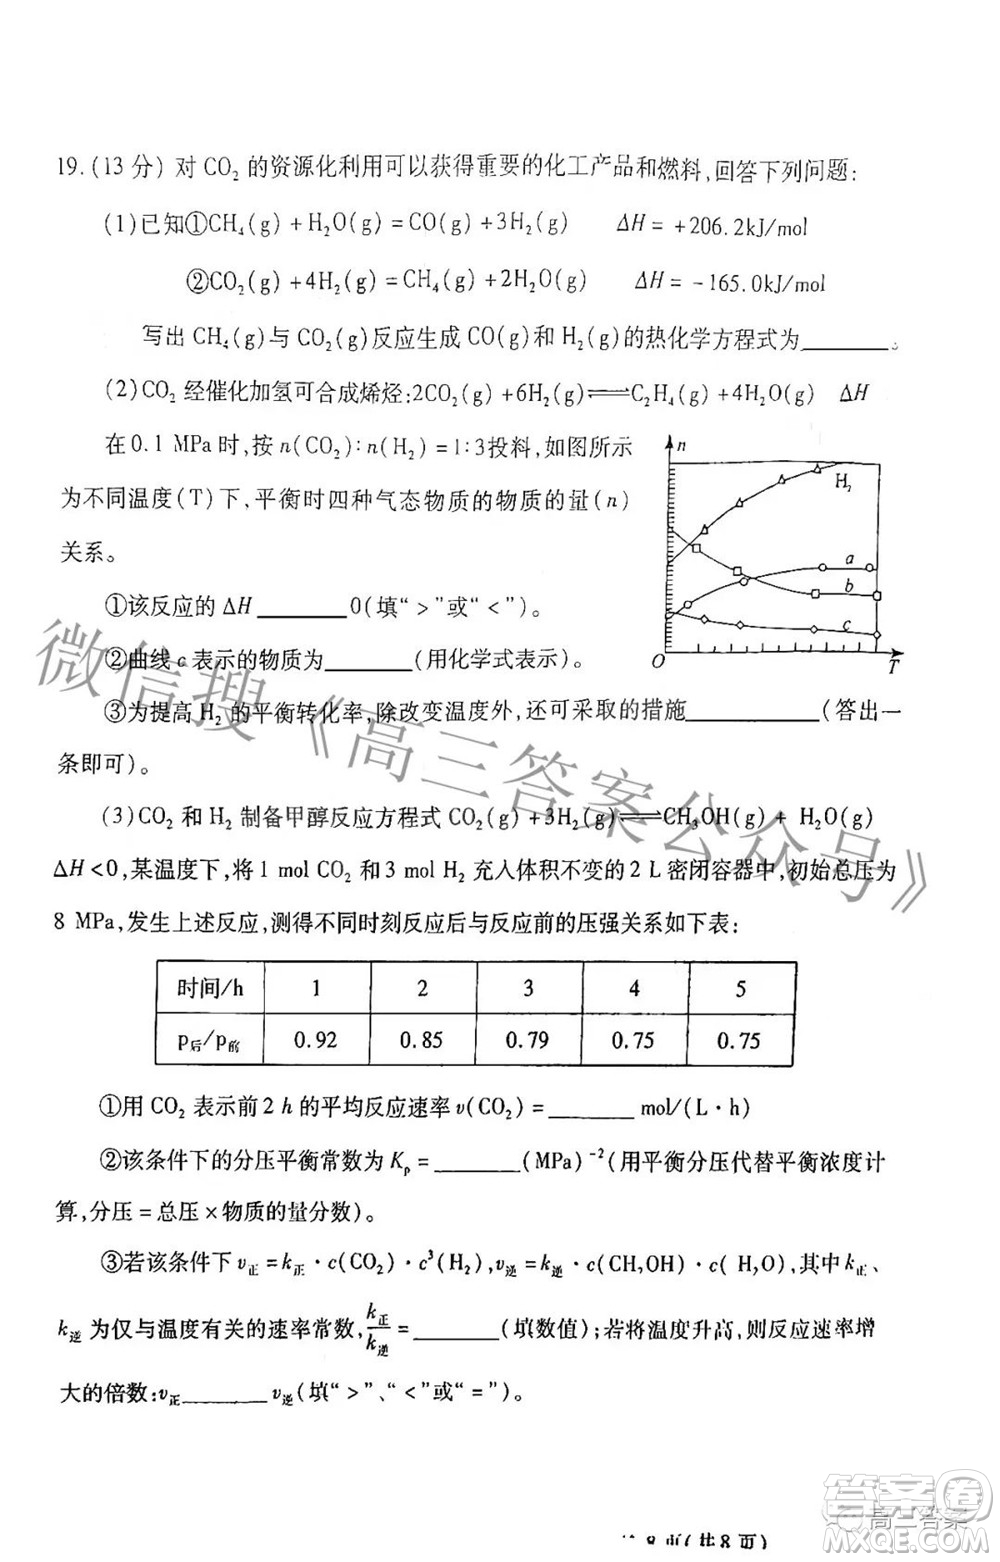 19.(13 分) 对 CO₂ 的资源化利用可以获得重要的化工产品和燃料,回答下列问题:
(1)已知①CH₄(g) + H₂O(g) = CO(g) + 3H₂(g) ΔH = +206.2kJ/mol
②CO₂(g) + 4H₂(g) = CH₄(g) + 2H₂O(g) ΔH = -165.0kJ/mol
写出 CH₄(g)与 CO₂(g)反应生成 CO(g)和 H₂(g)的热化学方程式为________。
(2)CO₂ 经催化加氢可合成烯烃:2CO₂(g) + 6H₂(g)⇌C₂H₄(g) + 4H₂O(g) ΔH
在 0.1 MPa 时,按 n(CO₂):n(H₂) = 1:3投料,如图所示
为不同温度(T)下,平衡时四种气态物质的物质的量(n)
关系。
n
H₂
a
b
c
O
T
①该反应的 ΔH ________ 0(填“>”或“<”)。
②曲线 c 表示的物质为________(用化学式表示)。
③为提高 H₂ 的平衡转化率,除改变温度外,还可采取的措施________(答出一
条即可)。
(3)CO₂ 和 H₂ 制备甲醇反应方程式 CO₂(g) +3H₂(g)⇌CH₃OH(g) + H₂O(g)
ΔH<0,某温度下,将 1 mol CO₂ 和 3 mol H₂ 充入体积不变的 2 L 密闭容器中,初始总压为
8 MPa,发生上述反应,测得不同时刻反应后与反应前的压强关系如下表:
时间/h 1 2 3 4 5
p后/p前 0.92 0.85 0.79 0.75 0.75
①用 CO₂ 表示前 2 h 的平均反应速率 v(CO₂) = ________ mol/(L·h)
②该条件下的分压平衡常数为 Kp = ________ (MPa)⁻²(用平衡分压代替平衡浓度计
算,分压 = 总压 × 物质的量分数)。
③若该条件下 v正 = k正·c(CO₂)·c³(H₂),v逆 = k逆·c(CH₃OH)·c(H₂O),其中 k正、
k逆 为仅与温度有关的速率常数,k正/k逆 = ________(填数值);若将温度升高,则反应速率增
大的倍数:v正________ v逆(填“>”、“<”或“=”)。
微信搜《高三答案公众号》
答案卷
高三答案
8 页(共 8 页)